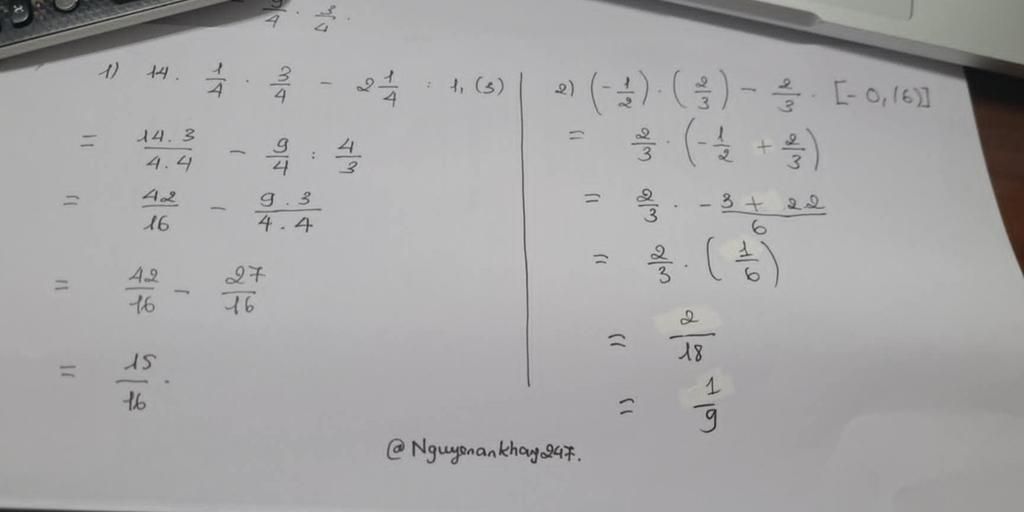 9/4 · 3/4.
1) 14. 1/4 · 3/4 - 2 1/4 : 1,(3)
= 14.3/4.4 - 9/4 : 4/3
= 42/16 - 9.3/4.4
= 42/16 - 27/16
= 15/16.
2) (-1/2) · (2/3) - 2/3 · [-0,(6)]
= 2/3 · (-1/2 + 2/3)
= 2/3 · -3 + 22/6
= 2/3 · (1/6)
= 2/18
= 1/9
@Nguyenankhay247.